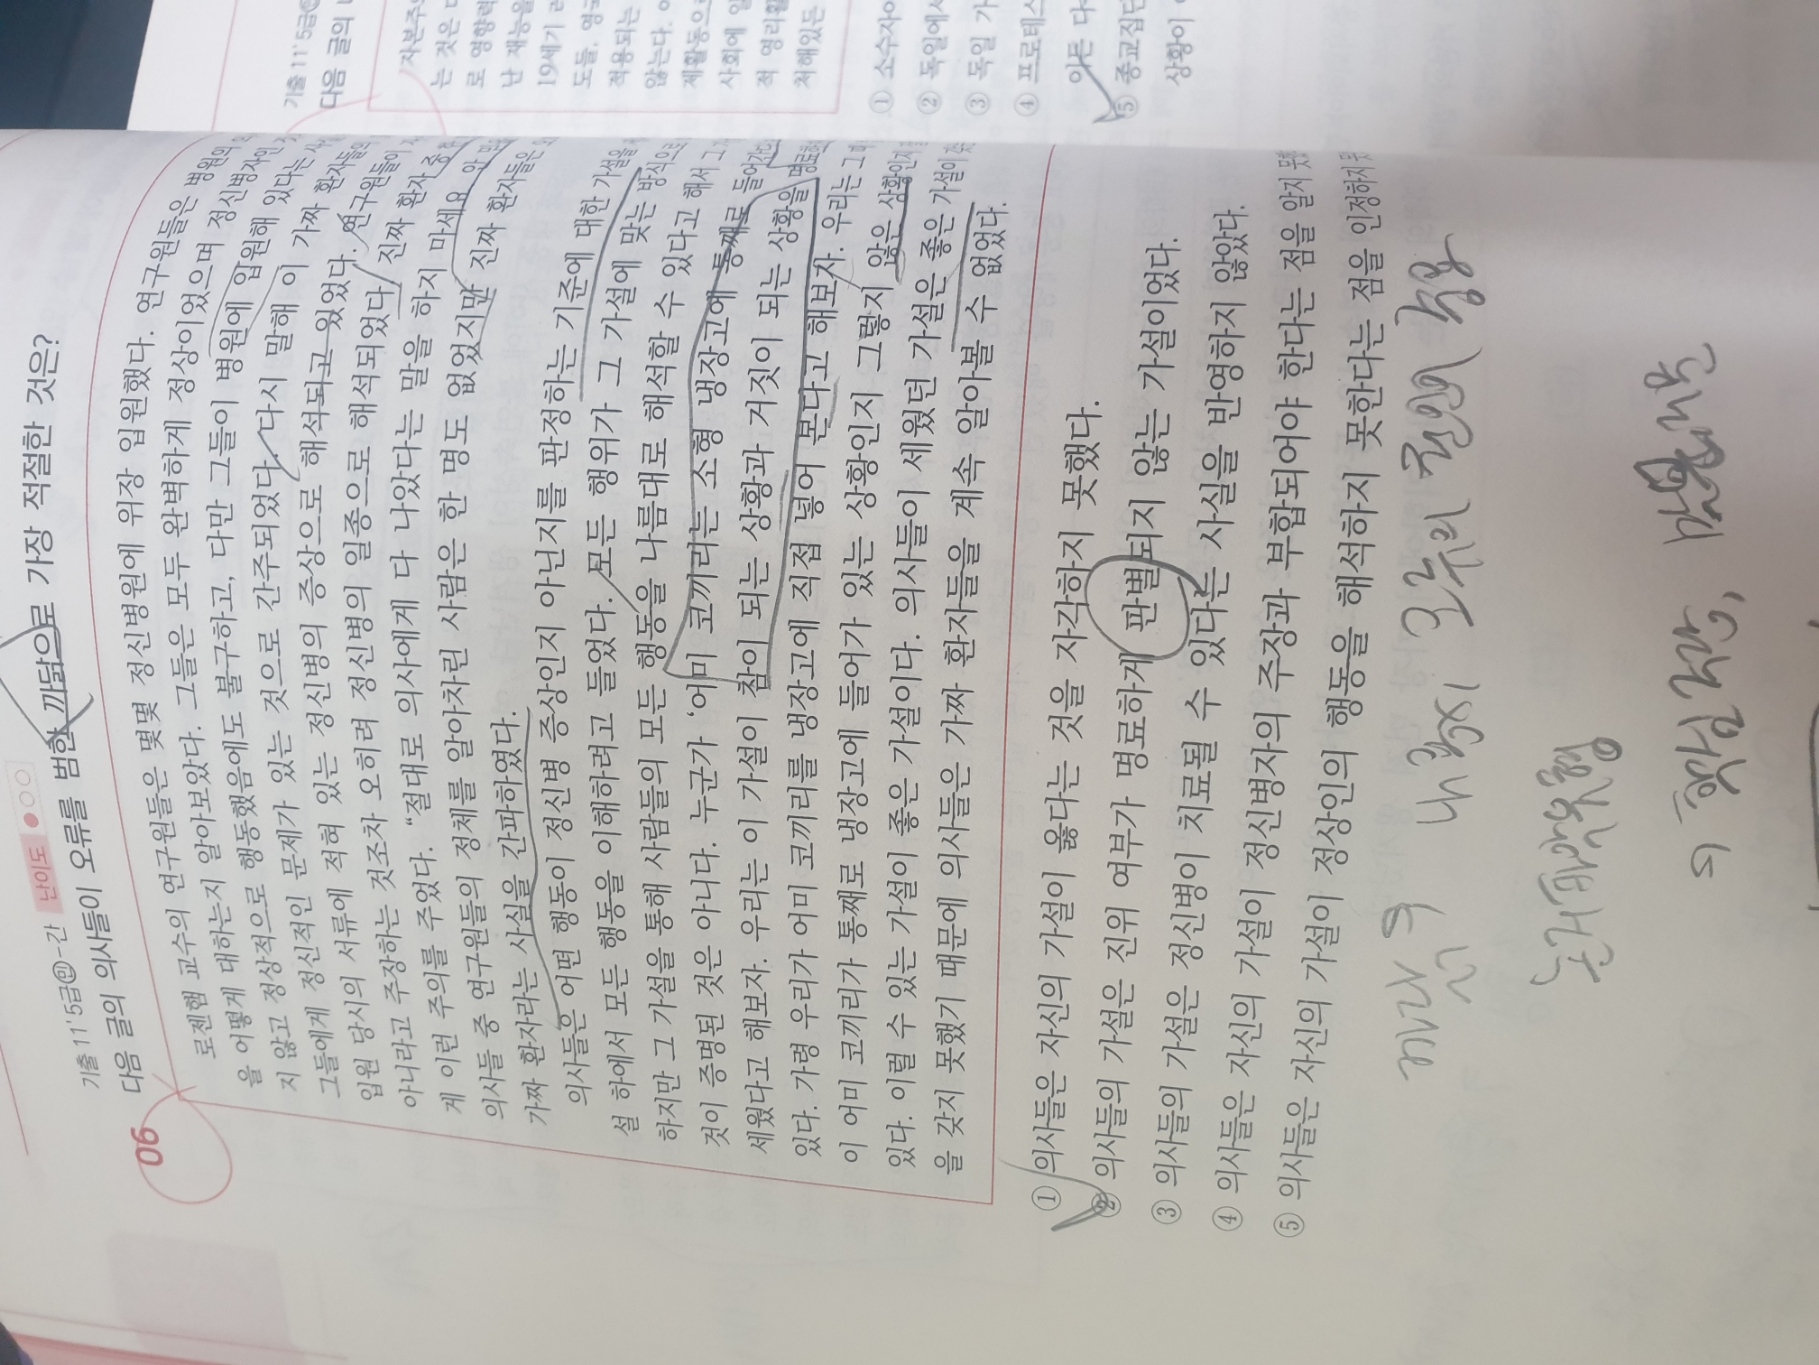 기출 11' 5급 민-간 난이도
06 다음 글의 의사들이 오류를 범한 까닭으로 가장 적절한 것은?
로젠햄 교수의 연구원들은 몇몇 정신병원에 위장 입원했다. 연구원들은 병원의
을 어떻게 대하는지 알아보았다. 그들은 모두 완벽하게 정상이었으며 정신병자인
지 않고 정상적으로 행동했음에도 불구하고, 다만 그들이 병원에 입원해 있다는
그들에게 정신적인 문제가 있는 것으로 간주되었다. 다시 말해 이 가짜 환자들의
입원 당시의 서류에 적혀 있는 정신병의 증상으로 해석되고 있었다. 연구원들이
아니라고 주장하는 것조차 오히려 정신병의 일종으로 해석되었다. 진짜 환자 중
게 이런 주의를 주었다. “절대로 의사에게 다 나았다는 말을 하지 마세요. 안
의사들 중 연구원들의 정체를 알아차린 사람은 한 명도 없었지만 진짜 환자들은
가짜 환자라는 사실을 간파하였다.
의사들은 어떤 행동이 정신병 증상인지 아닌지를 판정하는 기준에 대한 가설을
설 하에서 모든 행동을 이해하려고 들었다. 모든 행위가 그 가설에 맞는 방식으로
하지만 그 가설을 통해 사람들의 모든 행동을 나름대로 해석할 수 있다고 해서 그
것이 증명된 것은 아니다. 누군가 ‘어미 코끼리는 소형 냉장고에 통째로 들어간다
세웠다고 해보자. 우리는 이 가설이 참이 되는 상황과 거짓이 되는 상황을 명료하게
있다. 가령 우리가 어미 코끼리를 냉장고에 직접 넣어 본다고 해보자. 우리는 그
이 어미 코끼리가 통째로 냉장고에 들어가 있는 상황인지 그렇지 않은 상황인지
있다. 이럴 수 있는 가설이 좋은 가설이다. 의사들이 세웠던 가설은 좋은 가설이
을 갖지 못했기 때문에 의사들은 가짜 환자들을 계속 알아볼 수 없었다.
① 의사들은 자신의 가설이 옳다는 것을 자각하지 못했다.
② 의사들의 가설은 진위 여부가 명료하게 판별되지 않는 가설이었다.
③ 의사들의 가설은 정신병이 치료될 수 있다는 사실을 반영하지 않았다.
④ 의사들은 자신의 가설이 정신병자의 주장과 부합되어야 한다는 점을 알지 못
⑤ 의사들은 자신의 가설이 정상인의 행동을 해석하지 못한다는 점을 인정하지 못
까닭 오류의 원인
논거파악유형
핵심주장,
기출 11' 5급
다음 글의
자본주의
는 것은
로 영향력
난 재능을
19세기
도들, 영국
적용되는
않는다.
제활동으로
사회에
적 영리활
처해있든
① 소수자이
② 독일에서
③ 독일 가
④ 프로테스
이든 다
⑤ 종교집단
상황이